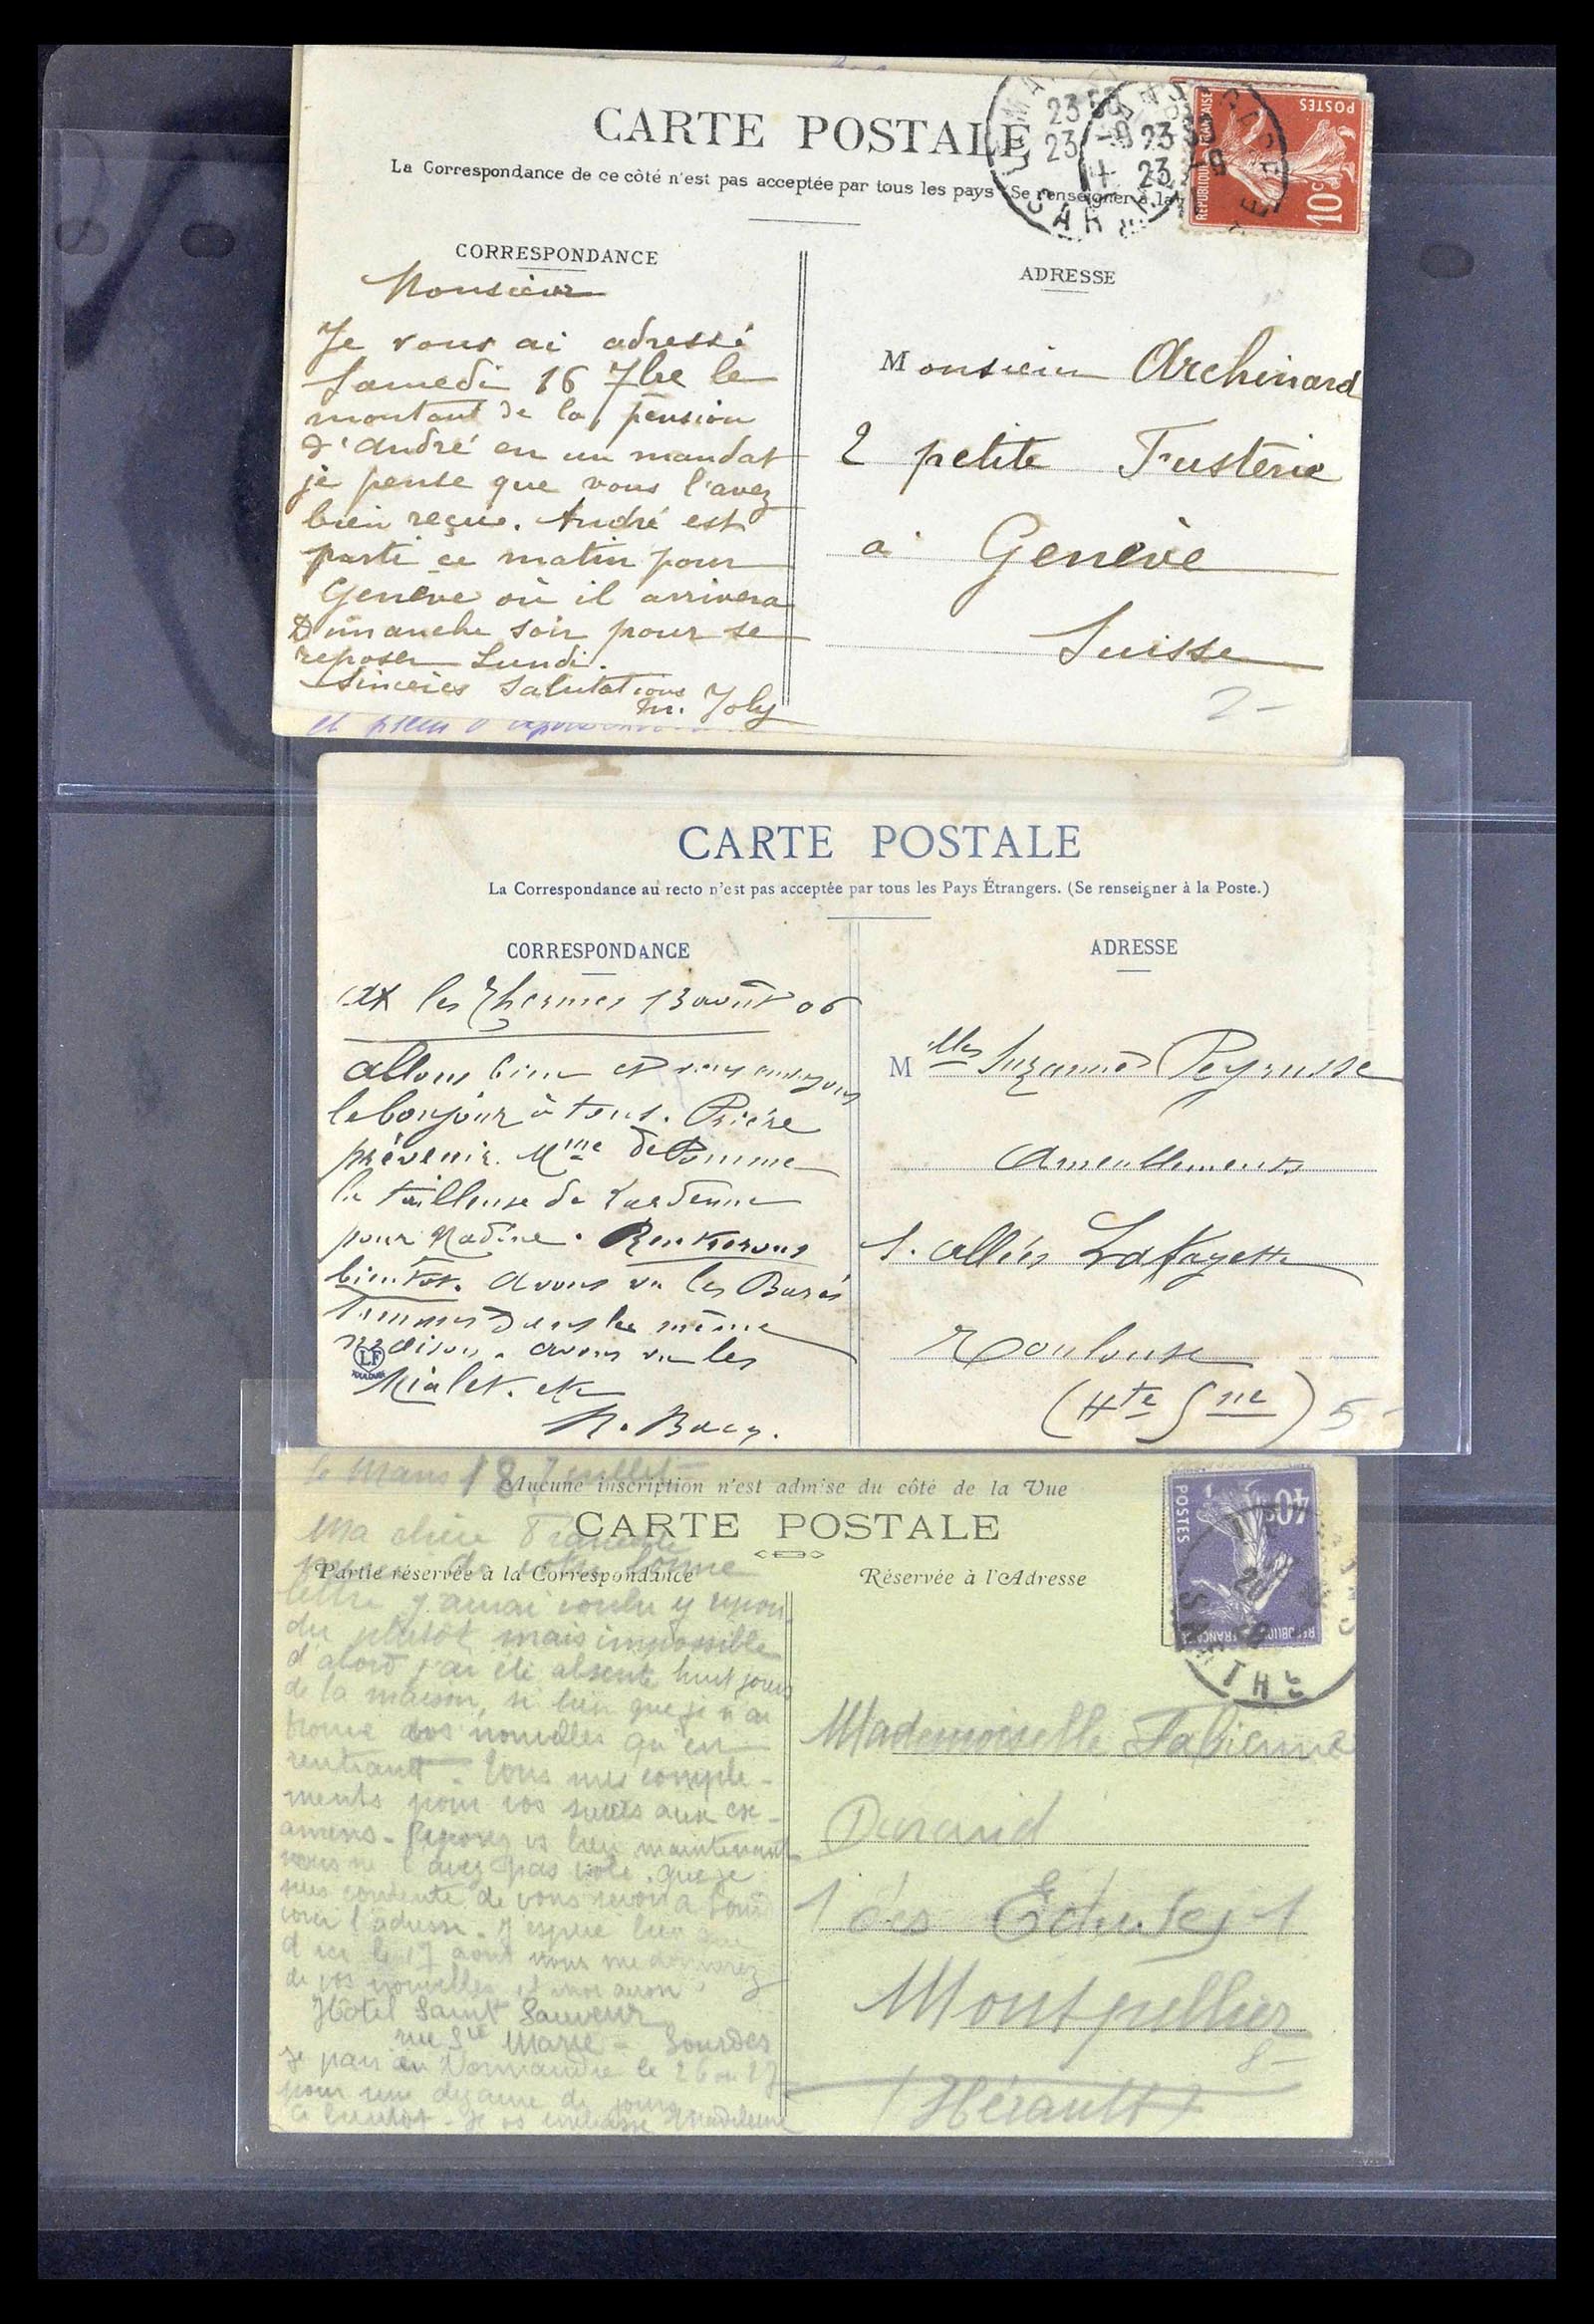 CARTE POSTALE
La Correspondance de ce côté n'est pas acceptée par tous les pays (Se renseigner à la
23
23 -9
23
23 -9
REPUBLIQUE FRANÇAISE
POSTES
10c
CORRESPONDANCE
Monsieur
Je vous ai adressé
Samedi 16 7bre le
montant de la pension
d'André en un mandat
je pense que vous l'avez
bien reçue. André est
parti ce matin pour
Genève où il arrivera
Dimanche soir pour se
reposer Lundi.
Sincères Salutations
M. Joly
ADRESSE
Monsieur Archinard
2 petite Fusterie
a Genève
Suisse
2-
CARTE POSTALE
La Correspondance au recto n'est pas acceptée par tous les Pays Étrangers. (Se renseigner à la Poste.)
CORRESPONDANCE
Ax les Thermes 13 août 06
allons bien et vous envoyons
le bonjour à tous. Prière
prévenir Mme
la tailleuse de Lardenne
pour Nadine. Rentrerons
bientôt. Avons vu les
Sommes dans la même
maison. avons vu les
Mialet. etc
LF
TOULOUSE
ADRESSE
Mlles Suzanne Peyrusse
Ameublements
1. allées Lafayette
Toulouse
(Hte Gne) 5-
Le Mans 18 Juillet
Aucune inscription n'est admise du côté de la Vue
CARTE POSTALE
Partie réservée à la Correspondance
Réservée à l'Adresse
POSTES
40c
Ma chère
de votre bonne
lettre j'aurai voulu y répon
du plutôt mais impossible
d'abord j'ai été absente huit jours
de la maison, si bien que je n'ai
trouvé vos nouvelles qu'en
rentrant. Tous mes compli-
ments pour vos succès aux ex-
amens. Reposez vs bien maintenant
vous ne l'avez pas volé. que je
suis contente de vous revoir à
voici l'adresse. J'espère bien que
d'ici le 17 août vous me donnerez
de vos nouvelles
Hôtel Saint Sauveur
rue Ste Marie - Lourdes
je pars en Normandie le 26 ou 27
pour une dizaine de jours
A bientôt. Je vs embrasse Madeleine
Mademoiselle Fabienne
Durand
1
Montpellier
8-
(Hérault)